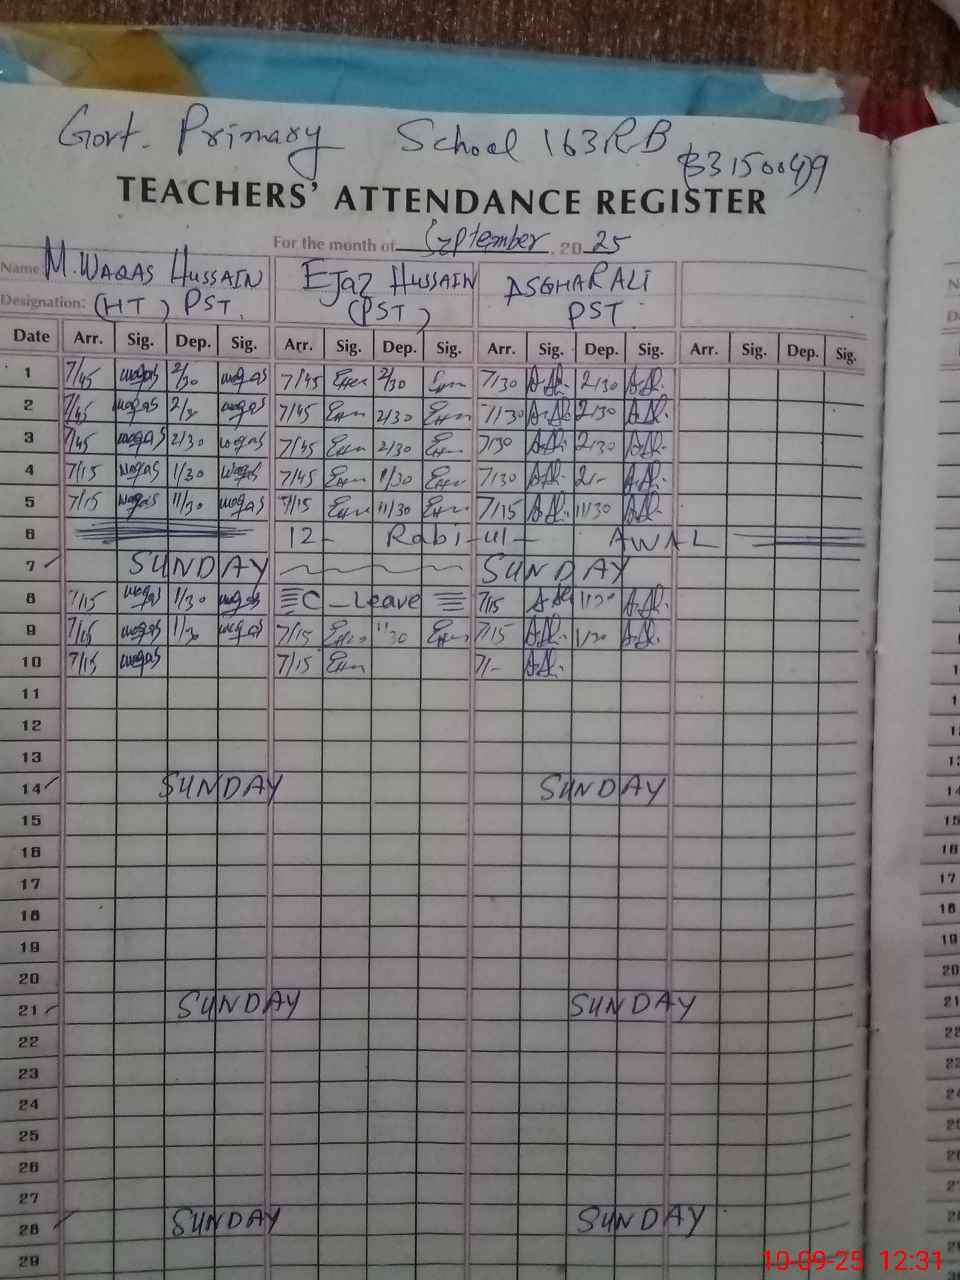 Govt. Primary School 163RB
(33150049)
TEACHERS' ATTENDANCE REGISTER
For the month of September, 2025
Name M. WAQAS HUSSAIN EJaz HUSSAIN ASGHAR ALI
Designation: (HT) PST. (PST) PST
Date Arr. Sig. Dep. Sig. Arr. Sig. Dep. Sig. Arr. Sig. Dep. Sig. Arr. Sig. Dep. Sig.
1 7/45 waqas 2/30 waqas 7/45 2/30 7/30 2/30
2 7/45 waqas waqas 7/45 2/30 7/30 2/30
3 7/45 waqas 2/30 waqas 7/45 2/30 7/30 2/30
4 7/15 waqas 1/30 waqas 7/45 7/30 2/-
5 7/15 waqas 11/30 waqas 7/15 11/30 7/15 11/30
6 12- Rabi-ul- AWAL
7 SUNDAY SUNDAY
8 7/15 waqas 1/30 waqas C-Leave 7/15 1/30
9 7/15 waqas 1/30 waqas 7/15 7/15 1/30
10 7/15 waqas 7/15 7/-
11
12
13
14 SUNDAY SUNDAY
15
16
17
18
19
20
21 SUNDAY SUNDAY
22
23
24
25
26
27
28 SUNDAY SUNDAY
29
10-09-25 12:31